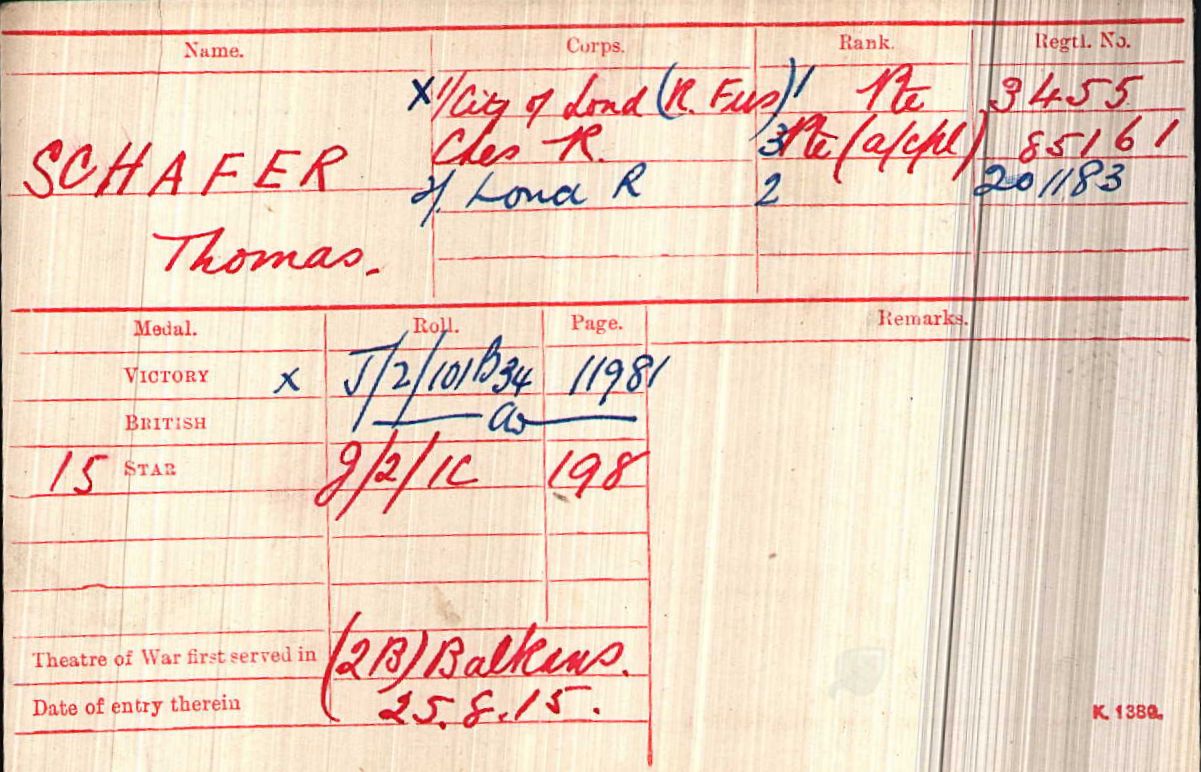 Name. Corps. Rank. Regtl. No.
X 1/City of Lond (R. Fus) 1 Pte 3455
SCHAFER Ches R. 3 Pte (a/cpl) 85161
2/. Lond R 2 201183
Thomas.
Medal. Roll. Page. Remarks.
VICTORY X J/2/101B34 11981
BRITISH — do —
15 STAR J/2/1C 198
Theatre of War first served in (2B) Balkans.
Date of entry therein 25.8.15.
K. 1380.